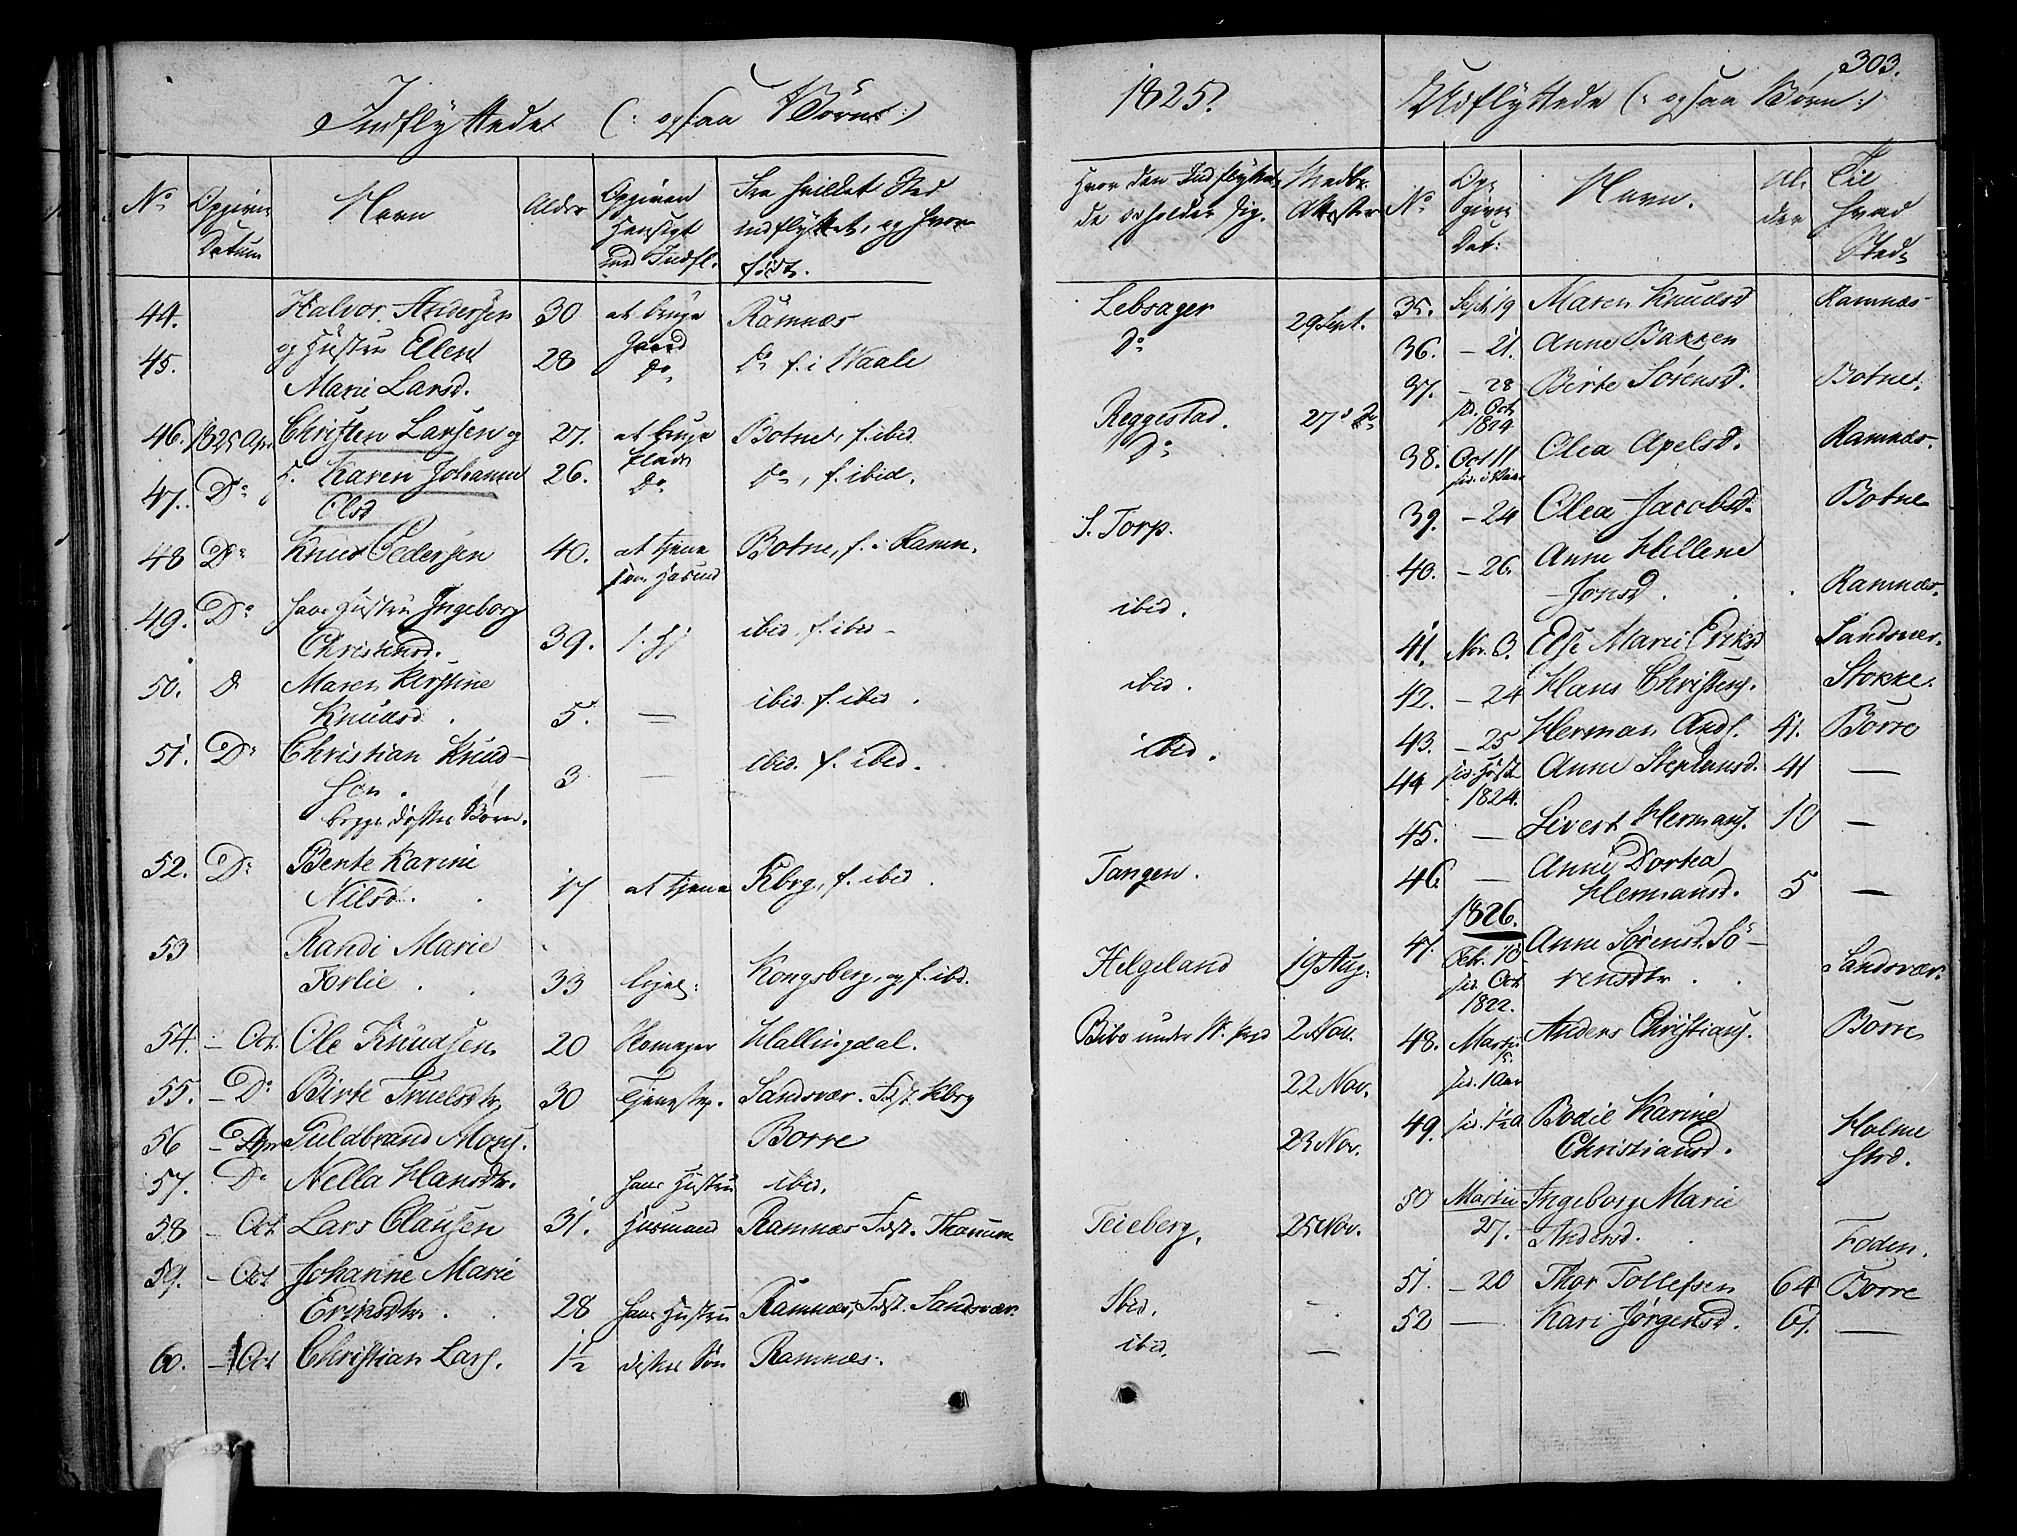 303.
Indflyttede (: ogsaa Børn :)
No Opgiven Datum Navn Alder Opgiven Hensigt med Indfl. Fra hvilket Sted indflyttet, og hvor født.
44. Halvor Andersen 30 at bruge Gaard Ramnæs
45. og Hustru Elen Marie Larsd. 28 Do Do f. i Waale
46. 1825 Apr. Christen Larsen og 27. at bruge Botne, f. ibid.
47. Do Karen Johanne Olsd 26. Do Do, f. ibid.
48 Do Knud Pedersen 40. at tjene som Botne, f. i Ramn.
49. Do hans Hustru Ingeborg Christensd. 39. ibid, f. ibid
50. D Maren Kirstine Knudsd. 5. — ibid. f. ibid.
51. Do Christian Knudsøn. 3 — ibid. f. ibid.
begge disses Børn.
52. Do Bente Karine Nilsd. 17 at tjene Kbrg., f. ibid.
53 Randi Marie 33 Kongsberg, og f. ibd.
54. – Oct. Ole Knudsen 20 Hallingdal.
55. – Do Birte Truelsdtr 30 Tjenestep. Sandsvær. Fdst. Kbrg
56 Guldbrand Mons. Borre
57. Do Nella Hansdtr. hans Hustru ibid.
58 – Oct Lars Clausen 31. Huusmand Ramnæs Fdst. Thanum
59. – Oct Johanne Marie Eriksdtr. 28 hans Hustru Ramnæs, Fdst. Sandsvær.
60. – Oct Christian Lars. 1½ disses Søn Ramnæs.
1825.
Hvor den Indflytte-de opholder sig. Medbr. Attester
Lebsager 29 Sept.
Do
Reggestad. 27 Do
Do
S. Torp.
ibid.
ibid.
ibid.
Tangen.
Helgeland 19 Aug.
2 Nov.
22 Nov.
23 Nov.
Teieberg. 25 Nov.
Ibid. –
ibid. —
Udflyttede (: ogsaa Børn :)
No Opgiven Dat: Navn. Alder Til hvad Sted
35. Sept. 19 Maren Knudsd Ramnæs
36. – 21. Anne Bakken
37. – 28 Birte Sørensd. Botne.
sid. Oct 1824
38. Oct 11 Olea Apelsd. Ramnæs
39. – 24 Olea Jacobsd. Botne
40. – 26. Anne Hellene Jonsd. Ramnæs.
41. Nov. 3. Else Marie Eriksd Sandsvær.
42. – 24 Hans Christens. Stokke.
43. – 25 Herman Ands. 41. Borre
44 sid. Høst 1824. Anne Stephensd. 41 —
45. — Sivert Hermans. 10 —
46. — Anne Dortea Hermansd. 5 —
1826.
47. Feb. 10 sid. Oct 1822. Anne Sørensd. Sørensdtr. Sandsvær.
48. Martii Anders Christians. Borre
49. sid. 1½ A Bodil Karine Christiansd. Holmestrd.
50 Martii 27. Ingeborg Marie Andersd. Foden.
51. – 20 Thor Tollefsen 64 Borre
52 — Kari Jørgensd. 61. —